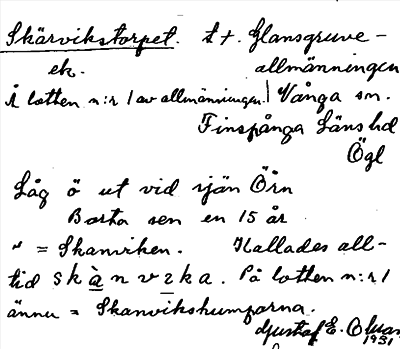 Skärvikstorpet. t +. Glansgruve-
ek. allmänningen
Å lotten n:r 1 av allmänningen. Vånga sn.
Finspånga Läns hd
Ögl
Låg ö ut vid sjön Örn
Borta sen en 15 år
" = Skanviken. Kallades all-
tid skànvıka. På lotten n:r 1
ännu = Skanvikshumparna.
Gustaf E.
1931